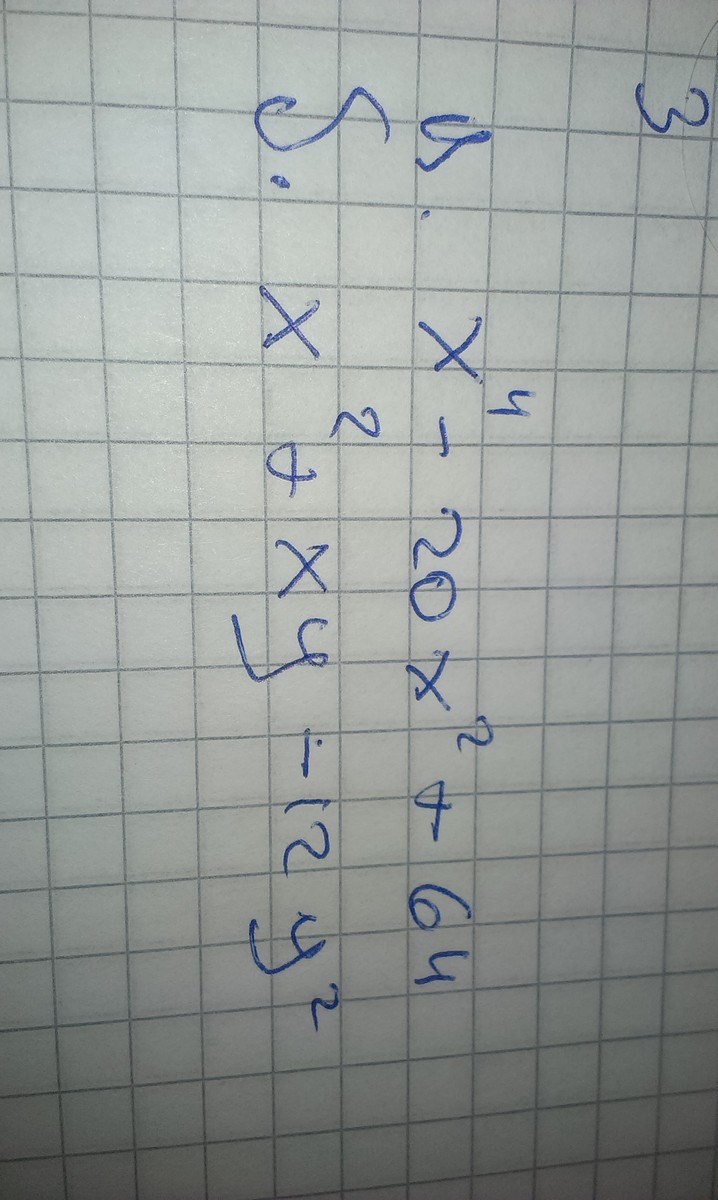 3
4. x⁴ - 20x² + 64
5. x² + xy - 12y²